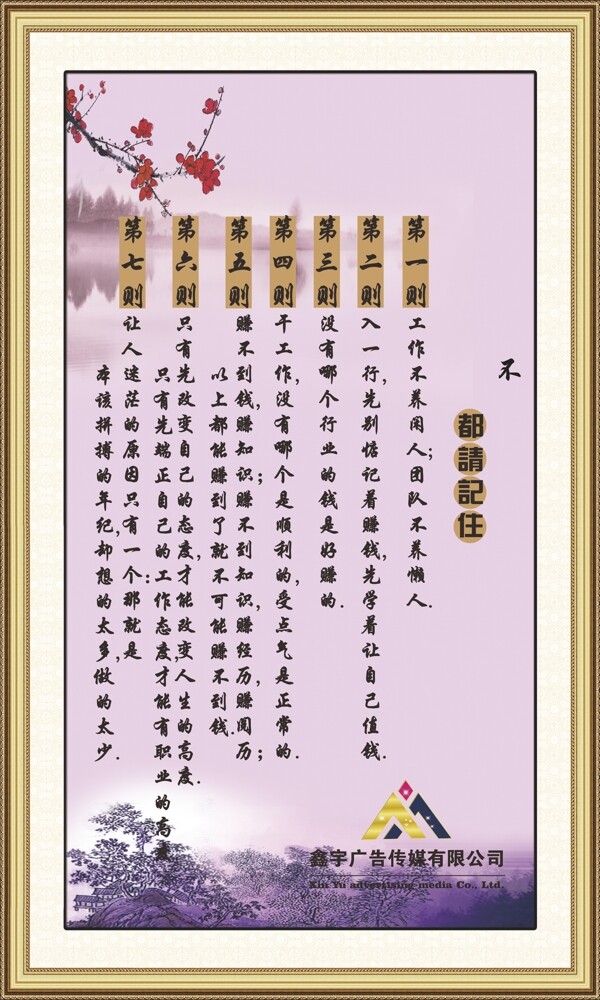 不
都請記住
第一则
工作不养闲人;团队不养懒人.
第二则
入一行,先别惦记着赚钱,先学着让自己值钱.
第三则
没有哪个行业的钱是好赚的.
第四则
干工作,没有哪个是顺利的,受点气是正常的.
第五则
赚不到钱,赚知识;赚不到知识,赚经历,赚阅历;
以上都能赚到了就不可能赚不到钱.
第六则
只有先改变自己的态度,才能改变人生的高度.
只有先端正自己的工作态度,才能有职业的高度
第七则
让人迷茫的原因只有一个:那就是
本该拼搏的年纪,却想的太多,做的太少.
鑫宇广告传媒有限公司
Xin Yu advertising media Co., Ltd.